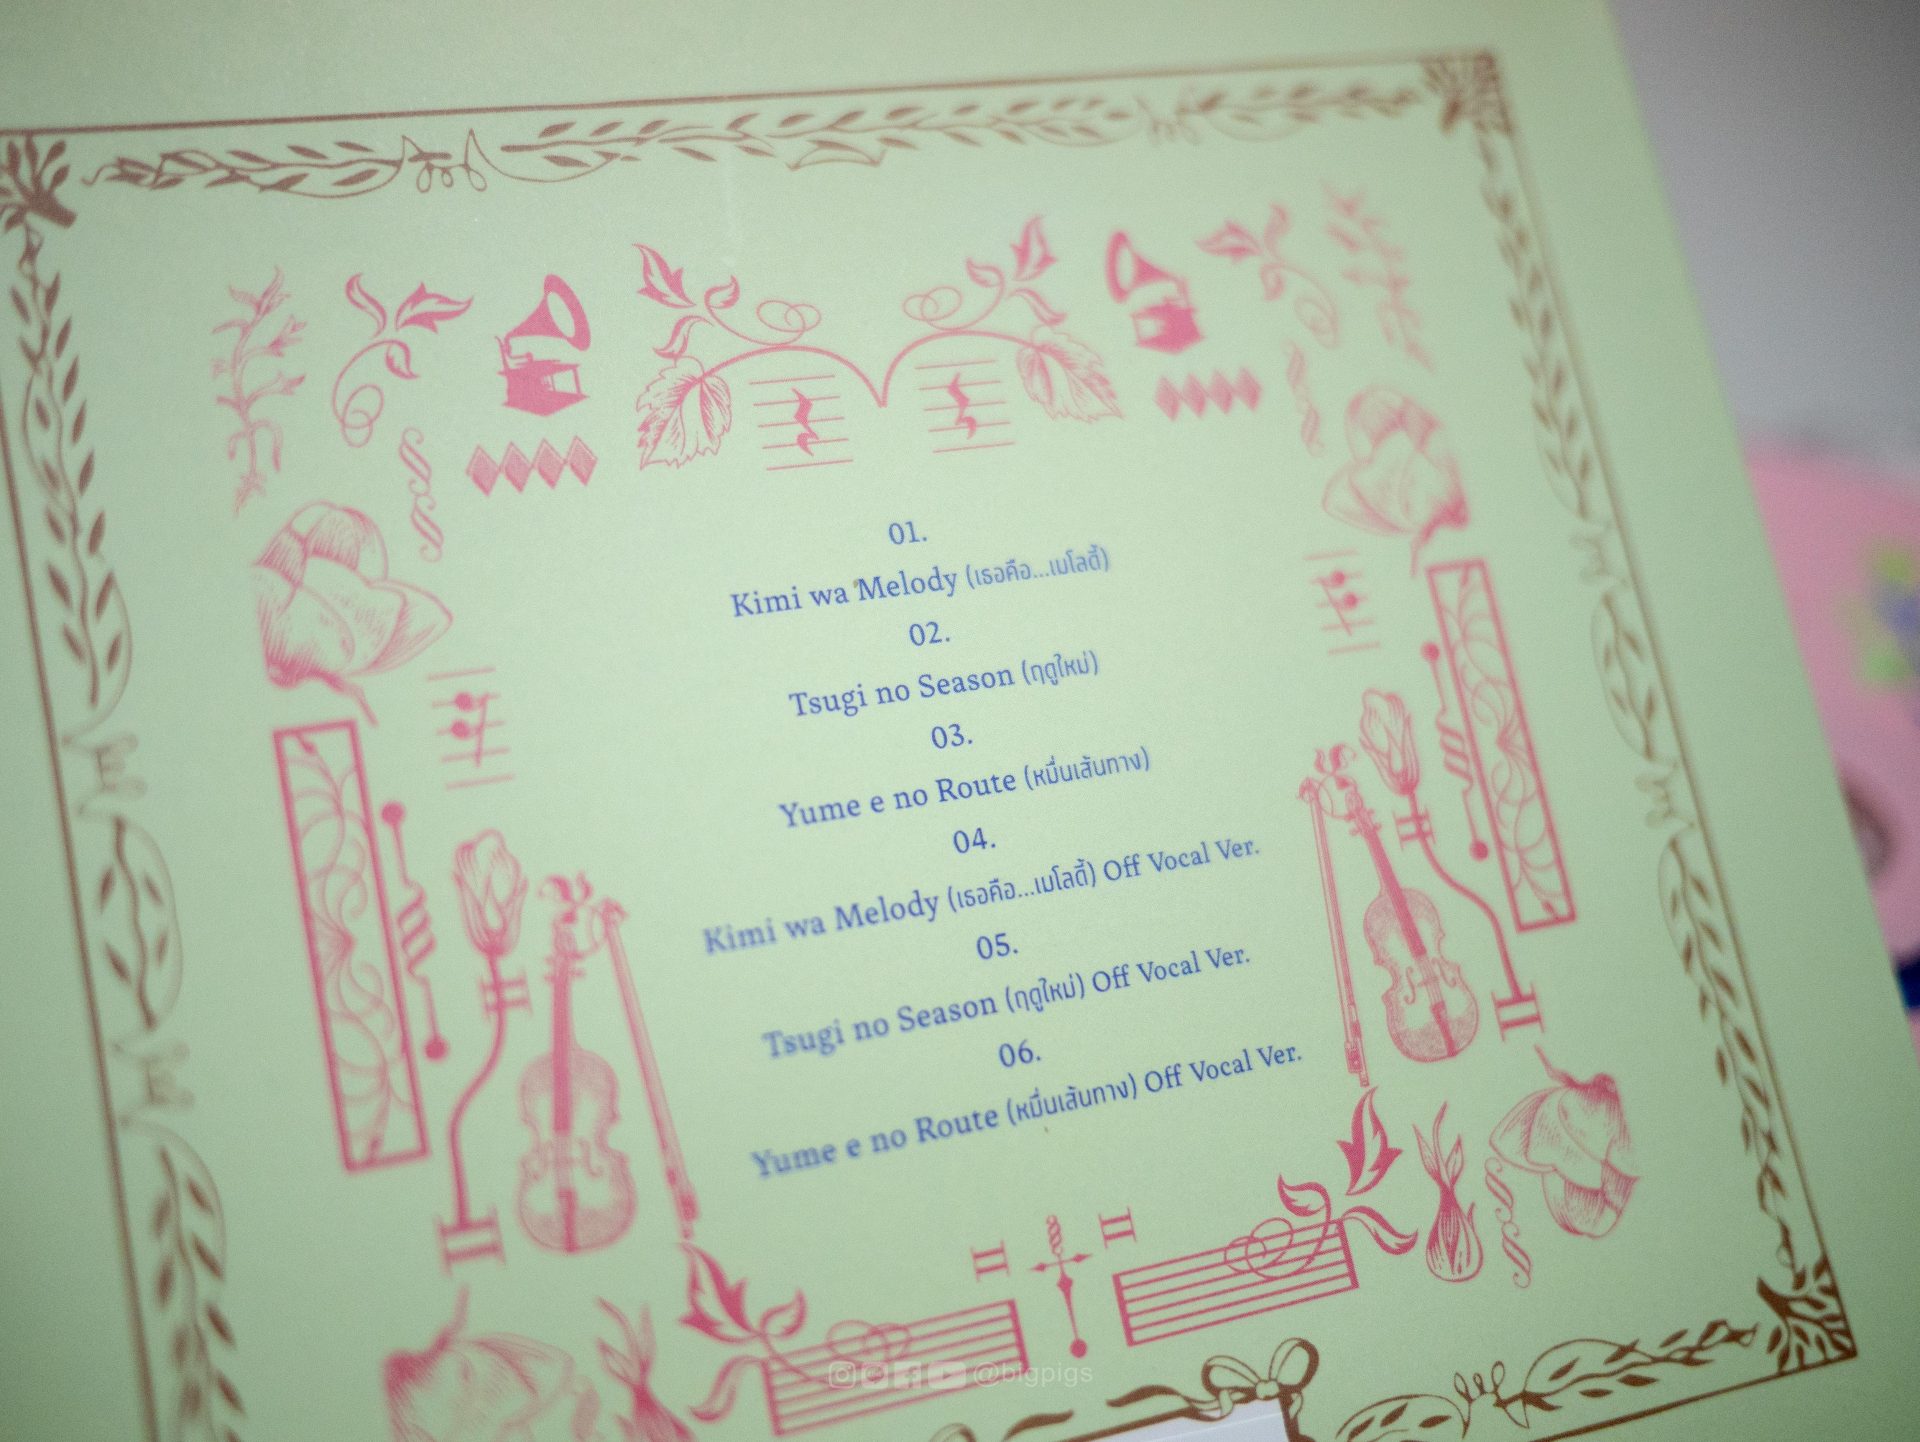 01.
Kimi wa Melody (เธอคือ...เมโลดี้)
02.
Tsugi no Season (ฤดูใหม่)
03.
Yume e no Route (หมื่นเส้นทาง)
04.
Kimi wa Melody (เธอคือ...เมโลดี้) Off Vocal Ver.
05.
Tsugi no Season (ฤดูใหม่) Off Vocal Ver.
06.
Yume e no Route (หมื่นเส้นทาง) Off Vocal Ver.
@bigpigs